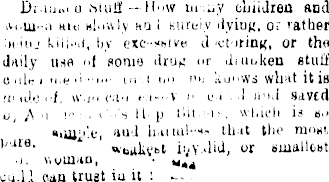 Drunken Stuff.—How many children and
women are slowly and surely dying, or rather
being killed, by excessive doctoring, or the
daily use of some drug or drunken stuff
called medicine, that no one knows what it is
made of, who can easily be cured and saved
Hop Bitters, which is so
pure, simple, and harmless that the most
woman, weakest invalid, or smallest
can trust in it